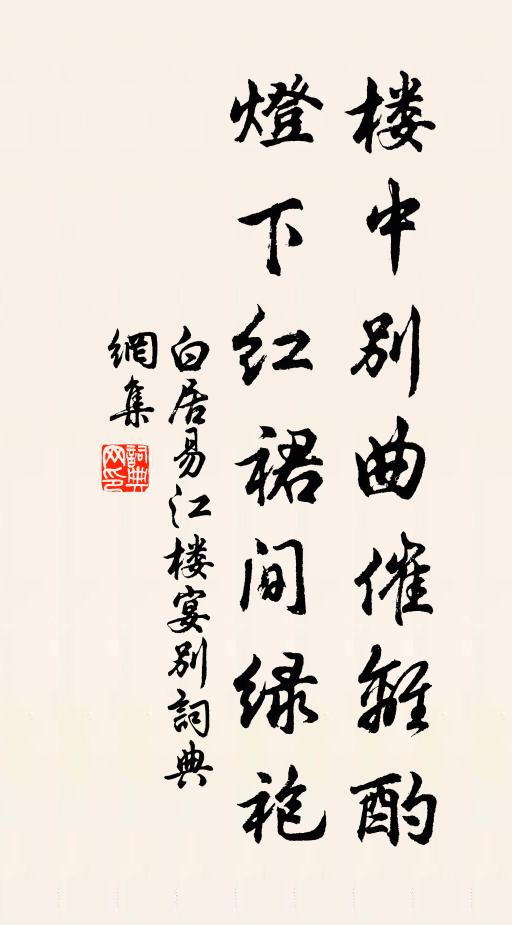 楼中別曲催離酌
燈下红裙间绿袍
白居易江楼宴别詞典
網集
詞典
网印